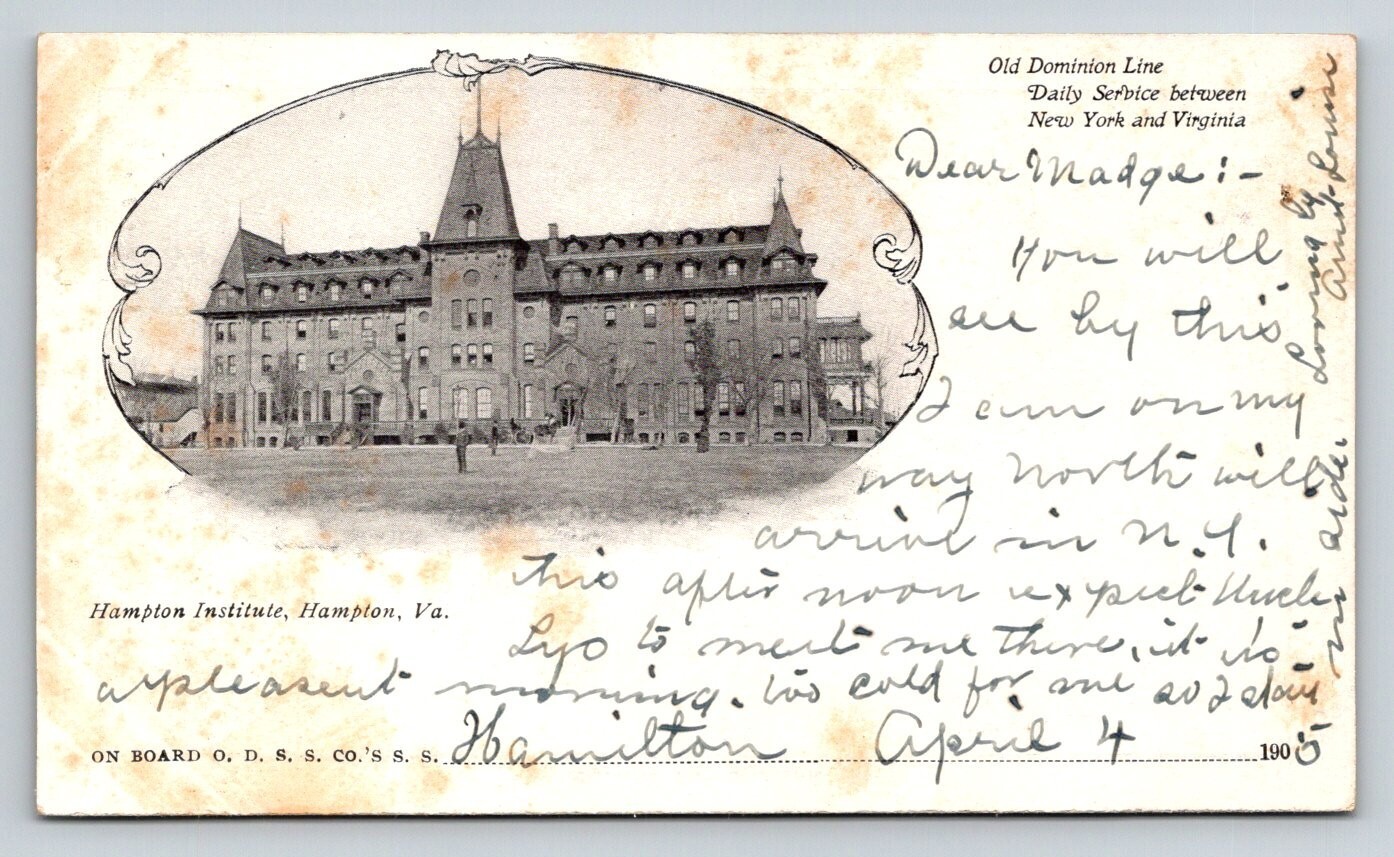 Old Dominion Line
Daily Service between
New York and Virginia
Dear Madge :-
You will
see by this
I am on my
way North will
arrive in N.Y.
this after noon expect Uncle
Lyo to meet me there, it is
a pleasent morning. too cold for me so I stay
in side.
Lovingly
Aunt Louise
Hampton Institute, Hampton, Va.
ON BOARD O. D. S. S. CO.'S S. S. Hamilton April 4 1905